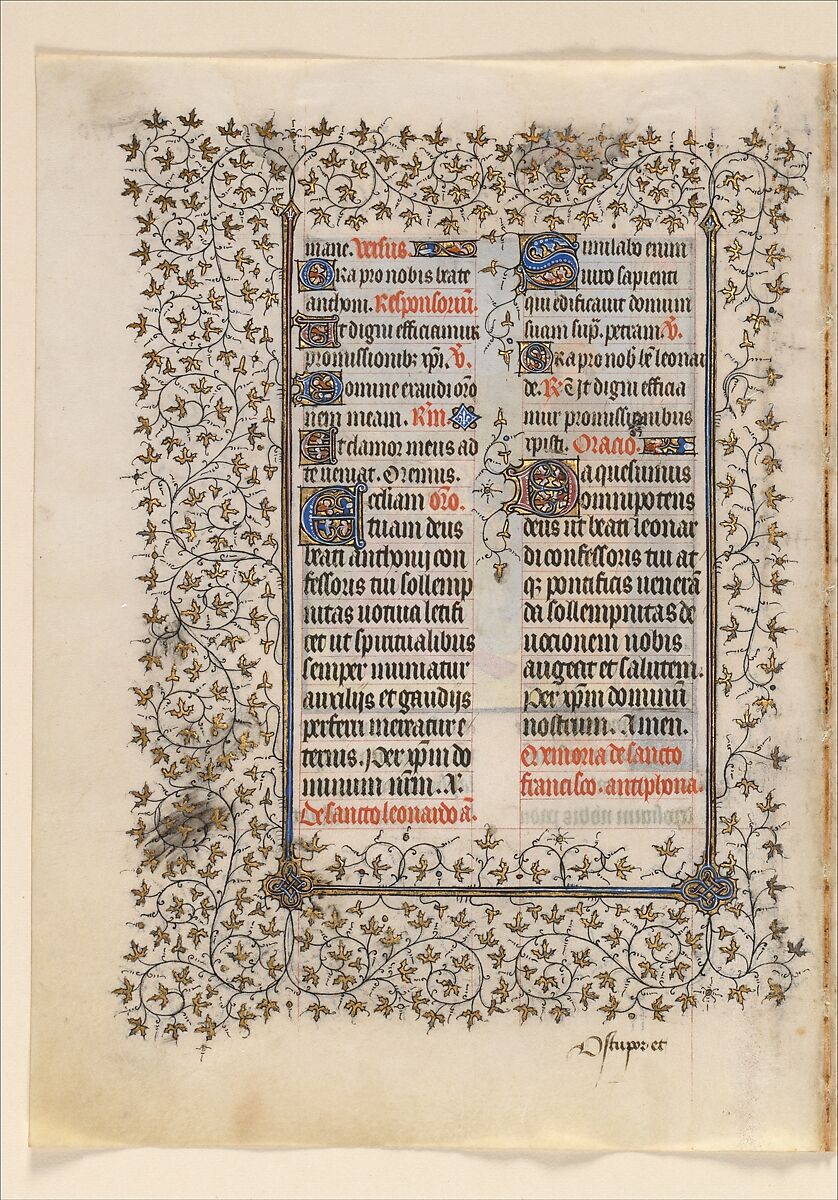 mane. Versus.
Ora pro nobis beate
anthoni. Responsoriū.
Ut digni efficiamur
promissionib⁊ xp̄i. V̄.
Domine exaudi or̄o
nem meam. R̄m
Et clamor meus ad
te veniat. Oremus.
Ecc̄liam or̄o.
tuam deus
beati anthonij con
fessoris tui sollemp
nitas votiua letifi
cet ut spiritualibus
semper muniatur
auxilijs et gaudijs
perfrui mereatur e
ternis. Per xp̄m do
minum nr̄m. A.
De sancto leonardo ā.
Similabo eum
viro sapienti
qui edificauit domum
suam sup̄. petram V̄.
Ora pro nob̄ b̄e leonar
de. R̄. Ut digni efficia
mur promissionibus
xpisti. Oracio.
Da quesumus
omnipotens
deus ut beati leonar
di confessoris tui at
q⁊ pontificis venerā
da sollempnitas de
uocionem nobis
augeat et salutem.
Per xp̄m dominū
nostrum. Amen.
Memoria de sancto
francisco. antiphona.
O stupor et